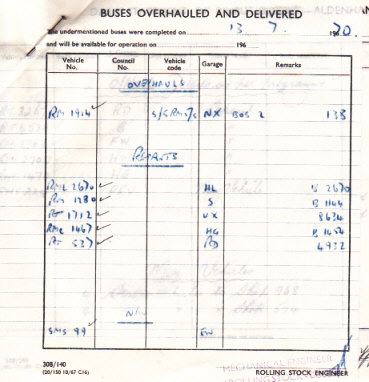 BUSES OVERHAULED AND DELIVERED
The undermentioned buses were completed on 13 . 7 . 1970.
and will be available for operation on 196
Vehicle No. Council No. Vehicle code Garage Remarks
OVERHAULS
RM 1914 NX BOS 2 138
REPAINTS
RML 2670 HL B 2670
RM 1280 S B 1144
RF 1712 8634
RMC 1467 HG B 1454
RF 537 4932
SMS 99 EW
308/140
(20/150 10/67 C16)
ROLLING STOCK ENGINEER
MECHANICAL ENGINEER